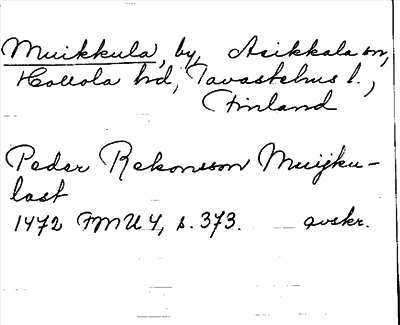 Muikkula, by, Asikkala sn,
Hollola hd, Tavastehus l.,
Finland
Peder Rekonsson Muijku-
last
1472 FMU 4, s. 373. avskr.